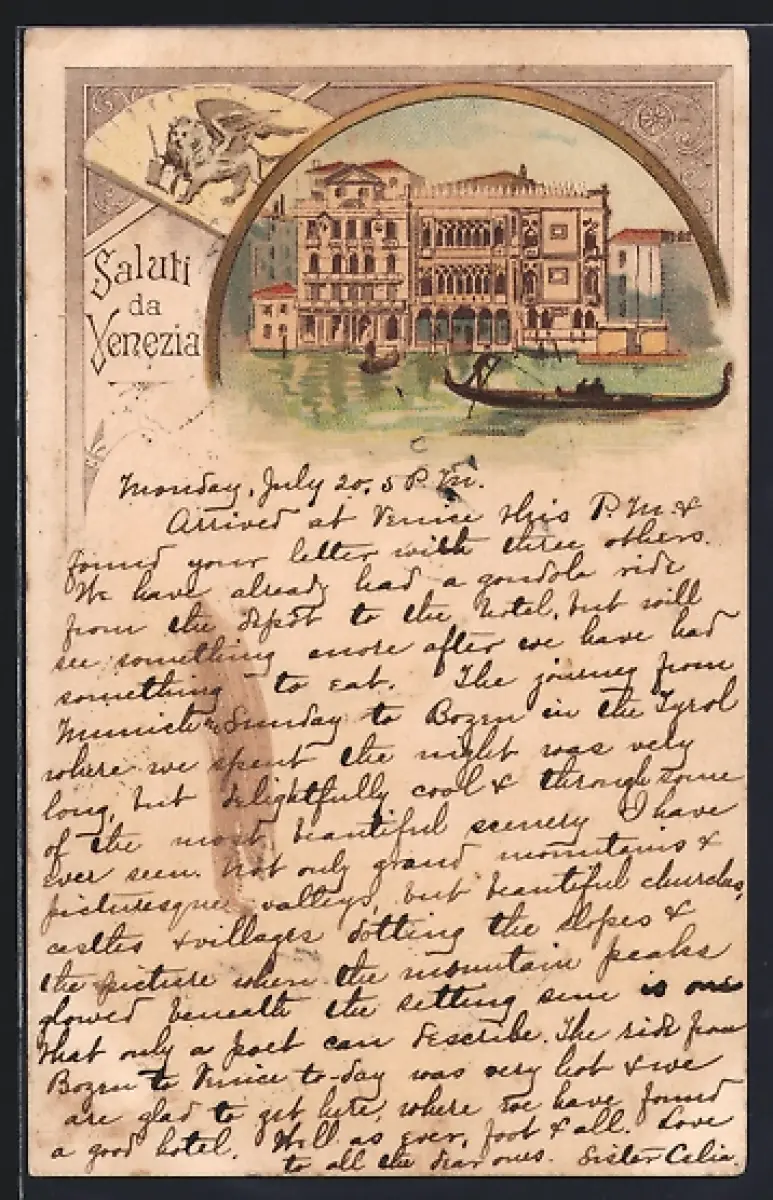 Saluti
da
Venezia
Monday, July 20, 5 P.M.
Arrived at Venice this P.M. &
found your letter with three others.
We have already had a gondola ride
from the depôt to the hotel, but will
see something more after we have had
something to eat. The journey from
Munich on Sunday to Bozen in the Tyrol
where we spent the night was very
long, but delightfully cool & through some
of the most beautiful scenery I have
ever seen. Not only grand mountains &
picturesque valleys, but beautiful churches,
castles & villages dotting the slopes &
the picture when the mountain peaks
glowed beneath the setting sun is one
that only a poet can describe. The ride from
Bozen to Venice to-day was very hot & we
are glad to get here, where we have found
a good hotel. Well as ever, foot & all. Love
to all the dear ones. Sister Celia.